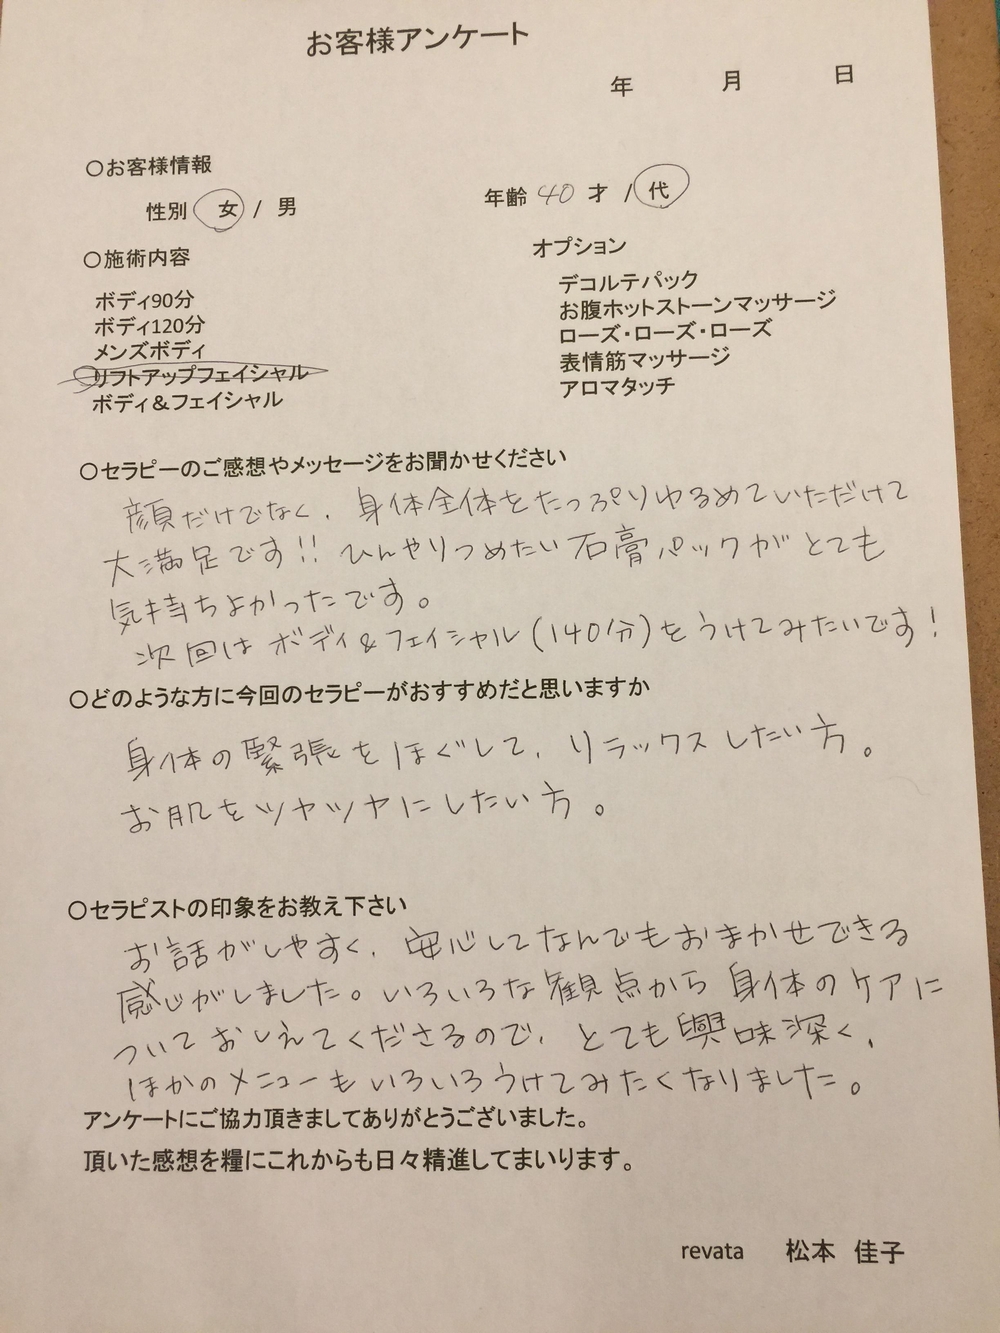 お客様アンケート
年 月 日
○お客様情報
性別 女 / 男 年齢 40 才 / 代
○施術内容 オプション
ボディ90分 デコルテパック
ボディ120分 お腹ホットストーンマッサージ
メンズボディ ローズ・ローズ・ローズ
リフトアップフェイシャル 表情筋マッサージ
ボディ＆フェイシャル アロマタッチ
○セラピーのご感想やメッセージをお聞かせください
顔だけでなく、身体全体をたっぷりゆるめていただけて
大満足です!! ひんやりつめたい石膏パックがとても
気持ちよかったです。
次回はボディ&フェイシャル(140分)をうけてみたいです!
○どのような方に今回のセラピーがおすすめだと思いますか
身体の緊張をほぐして、リラックスしたい方。
お肌をツヤツヤにしたい方。
○セラピストの印象をお教え下さい
お話がしやすく、安心してなんでもおまかせできる
感じがしました。いろいろな観点から身体のケアに
ついておしえてくださるので、とても興味深く、
ほかのメニューもいろいろうけてみたくなりました。
アンケートにご協力頂きましてありがとうございました。
頂いた感想を糧にこれからも日々精進してまいります。
revata 松本 佳子